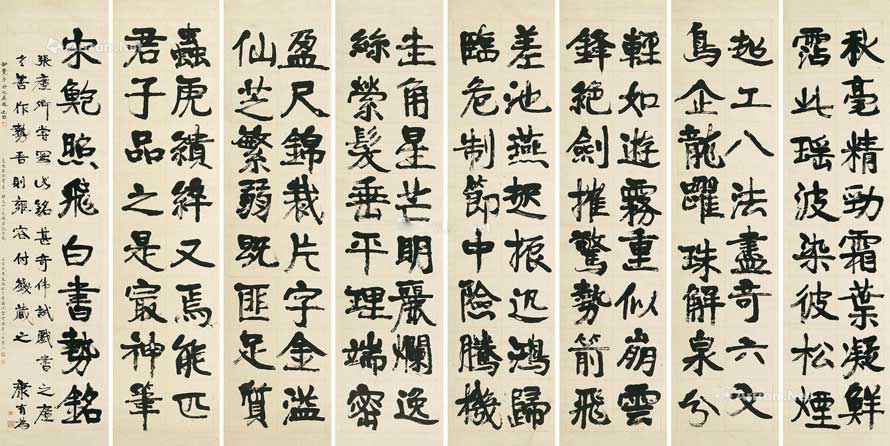 秋毫精勁霜葉凝鮮
霑此瑤波染彼松煙
超工八法盡奇六文
鳥企龍躍珠解泉分
輕如遊霧重似崩雲
鋒絕劍摧驚勢箭飛
差池燕起振迅鴻歸
臨危制節中險騰機
圭角星芒明麗爛逸
絲縈髮垂平理端密
盈尺錦裁片字金溢
仙芝繁弱既匪足質
蟲虎續綷又焉能匹
君子品之是最神筆
宋鮑照飛白書勢銘
張廉卿嘗寫此銘甚奇偉試戲書之廉
卿善作勢吾則雍容付籛藏之 康有為